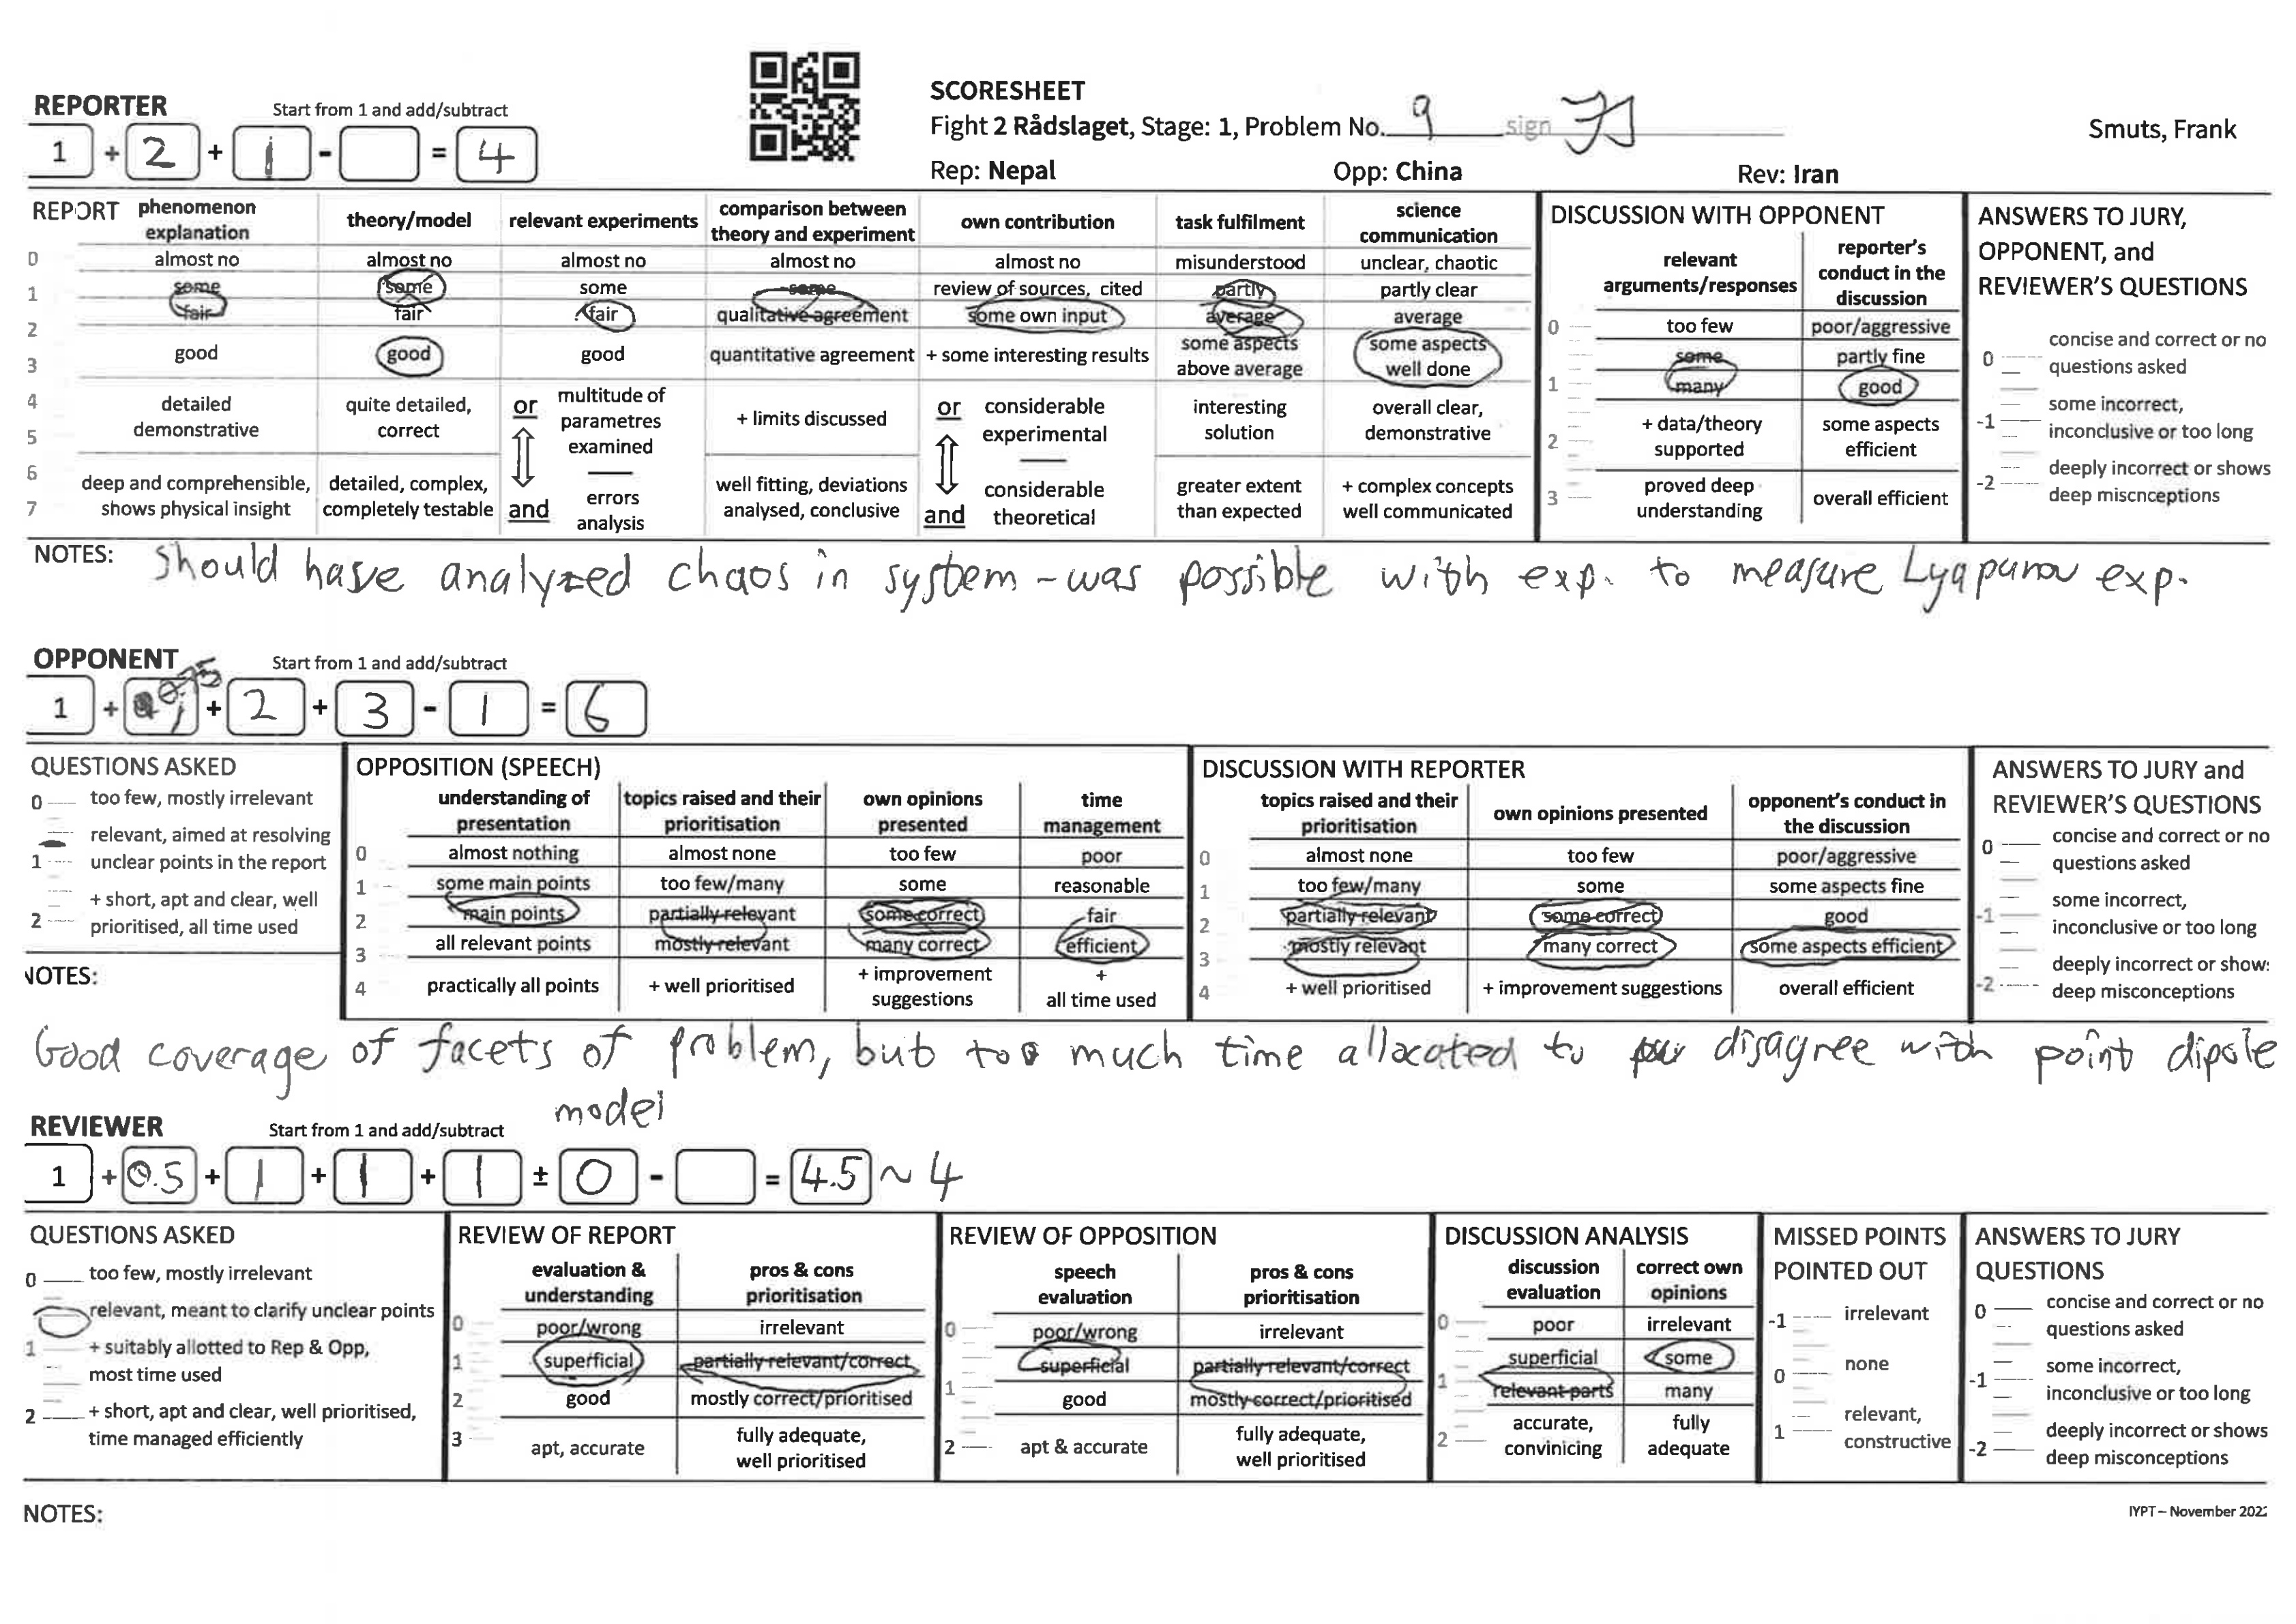 SCORESHEET
Fight 2 Rådslaget, Stage: 1, Problem No. 9 sign
Smuts, Frank
Rep: Nepal Opp: China Rev: Iran
REPORTER Start from 1 and add/subtract
1 + 2 + 1 - = 4
REPORT
phenomenon explanation
theory/model
relevant experiments
comparison between theory and experiment
own contribution
task fulfilment
science communication
0 almost no almost no almost no almost no almost no misunderstood unclear, chaotic
1 some some some some review of sources, cited partly partly clear
2 fair fair fair qualitative agreement some own input average average
3 good good good quantitative agreement + some interesting results some aspects above average some aspects well done
4
5
detailed demonstrative
quite detailed, correct
or
multitude of parametres examined
+ limits discussed
or
considerable experimental
interesting solution
overall clear, demonstrative
6
7
deep and comprehensible, shows physical insight
detailed, complex, completely testable
and
errors analysis
well fitting, deviations analysed, conclusive
and
considerable theoretical
greater extent than expected
+ complex concepts well communicated
DISCUSSION WITH OPPONENT
relevant arguments/responses
reporter's conduct in the discussion
0 too few poor/aggressive
some partly fine
1 many good
2 + data/theory supported some aspects efficient
3 proved deep understanding overall efficient
ANSWERS TO JURY,
OPPONENT, and
REVIEWER'S QUESTIONS
0 concise and correct or no questions asked
-1 some incorrect, inconclusive or too long
-2 deeply incorrect or shows deep miscnceptions
NOTES: Should have analyzed chaos in system - was possible with exp. to measure Lyapunov exp.
OPPONENT Start from 1 and add/subtract
1 + 0.75 + 2 + 3 - 1 = 6
QUESTIONS ASKED
0 too few, mostly irrelevant
relevant, aimed at resolving
1 unclear points in the report
+ short, apt and clear, well
2 prioritised, all time used
OPPOSITION (SPEECH)
understanding of presentation
topics raised and their prioritisation
own opinions presented
time management
0 almost nothing almost none too few poor
1 some main points too few/many some reasonable
2 main points partially relevant some correct fair
3 all relevant points mostly relevant many correct efficient
4 practically all points + well prioritised + improvement suggestions + all time used
DISCUSSION WITH REPORTER
topics raised and their prioritisation
own opinions presented
opponent's conduct in the discussion
0 almost none too few poor/aggressive
1 too few/many some some aspects fine
2 partially relevant some correct good
3 mostly relevant many correct some aspects efficient
4 + well prioritised + improvement suggestions overall efficient
ANSWERS TO JURY and
REVIEWER'S QUESTIONS
0 concise and correct or no questions asked
-1 some incorrect, inconclusive or too long
-2 deeply incorrect or show deep misconceptions
NOTES:
Good coverage of facets of problem, but too much time allocated to disagree with point dipole
model
REVIEWER Start from 1 and add/subtract
1 + 0.5 + 1 + 1 + 1 ± 0 - = 4.5 ~ 4
QUESTIONS ASKED
0 too few, mostly irrelevant
relevant, meant to clarify unclear points
1 + suitably allotted to Rep & Opp,
most time used
2 + short, apt and clear, well prioritised,
time managed efficiently
REVIEW OF REPORT
evaluation & understanding
pros & cons prioritisation
0 poor/wrong irrelevant
1 superficial partially relevant/correct
2 good mostly correct/prioritised
3 apt, accurate fully adequate, well prioritised
REVIEW OF OPPOSITION
speech evaluation
pros & cons prioritisation
0 poor/wrong irrelevant
superficial partially relevant/correct
1 good mostly correct/prioritised
2 apt & accurate fully adequate, well prioritised
DISCUSSION ANALYSIS
discussion evaluation
correct own opinions
0 poor irrelevant
superficial some
1 relevant parts many
2 accurate, convinicing fully adequate
MISSED POINTS
POINTED OUT
-1 irrelevant
0 none
1 relevant, constructive
ANSWERS TO JURY
QUESTIONS
0 concise and correct or no questions asked
-1 some incorrect, inconclusive or too long
-2 deeply incorrect or shows deep misconceptions
NOTES:
IYPT – November 202